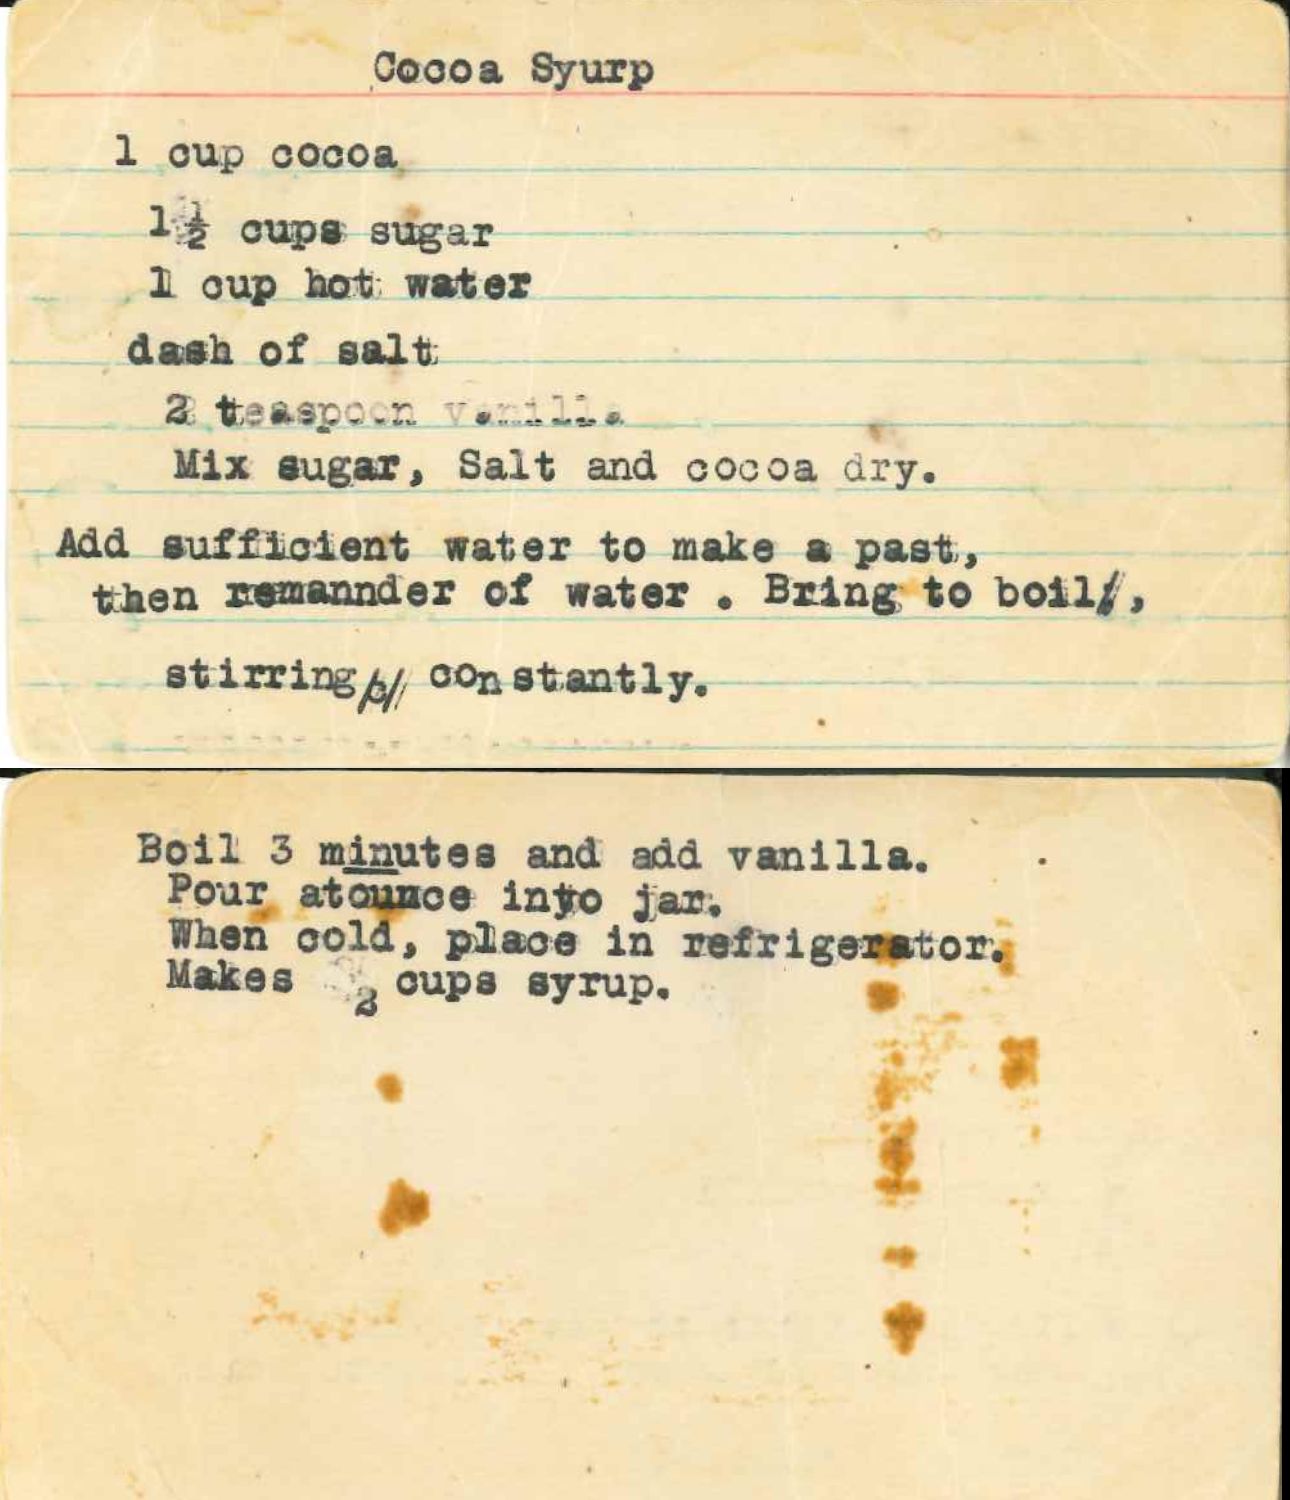 Cocoa Syurp
1 cup cocoa
1½ cups sugar
1 cup hot water
dash of salt
2 teaspoon vanilla
Mix sugar, Salt and cocoa dry.
Add sufficient water to make a past,
then remannder of water . Bring to boil,
stirring constantly.
Boil 3 minutes and add vanilla.
Pour atounce into jar.
When cold, place in refrigerator.
Makes 2 cups syrup.